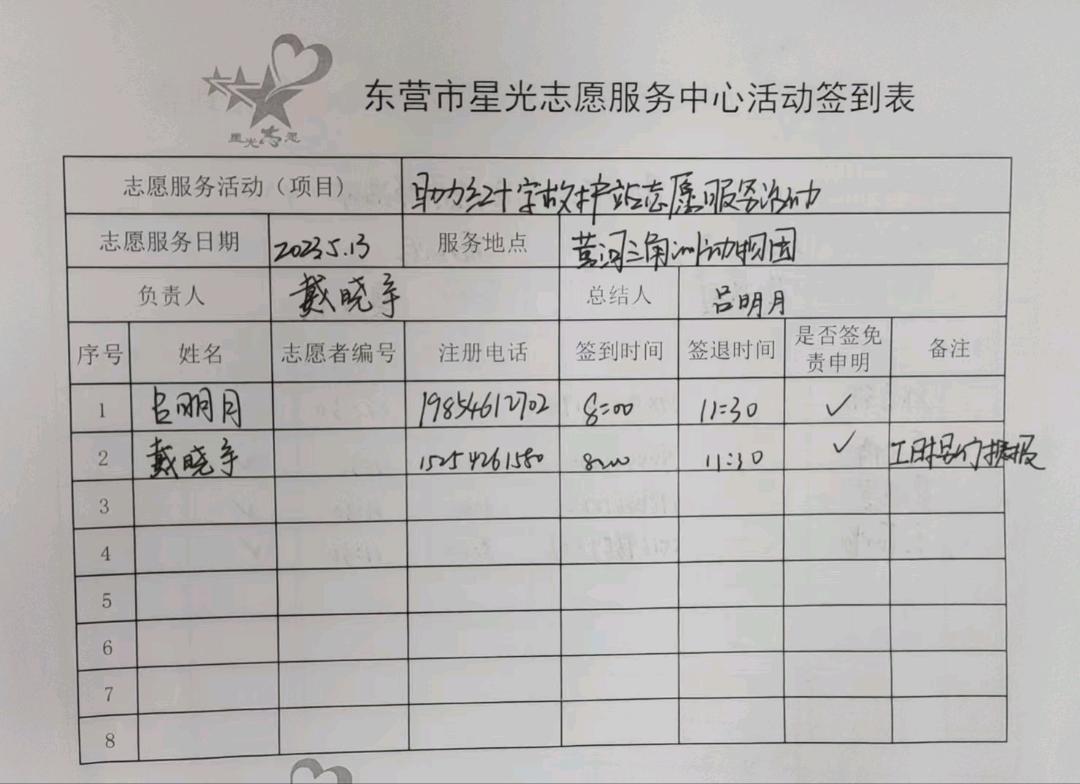 星光志愿
东营市星光志愿服务中心活动签到表
志愿服务活动（项目） 助力红十字救护站志愿服务活动
志愿服务日期 2023.5.13 服务地点 黄河三角洲动物园
负责人 戴晓宇 总结人 吕明月
序号 姓名 志愿者编号 注册电话 签到时间 签退时间 是否签免责申明 备注
1 吕明月 19854612702 8:00 11:30 ✓
2 戴晓宇 15254261580 8:00 11:30 ✓
3
4
5
6
7
8